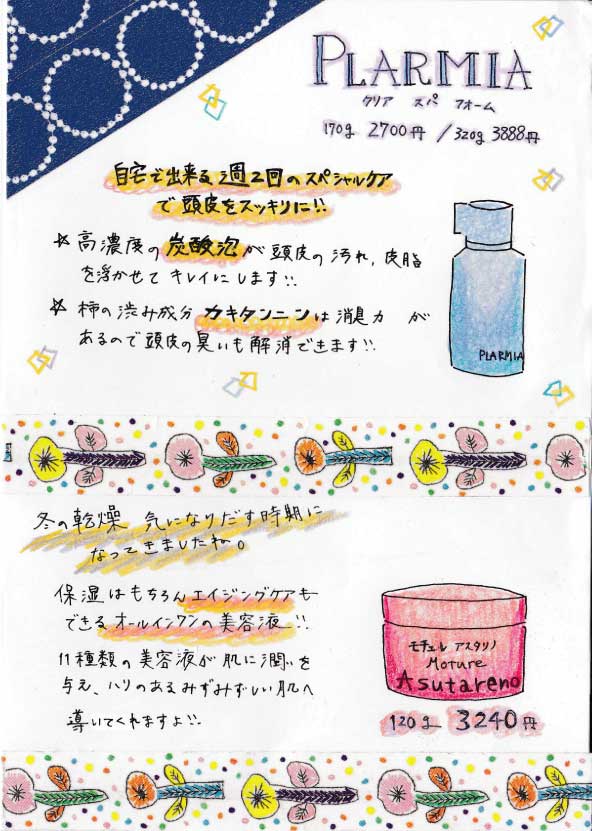 PLARMIA
クリア スパ フォーム
170g 2700円 / 320g 3888円
自宅で出来る週2回のスペシャルケア
で頭皮をスッキリに!!
☆ 高濃度の炭酸泡が頭皮の汚れ、皮脂
を浮かせてキレイにします!!
☆ 柿の渋み成分 カキタンニンは消臭力 が
あるので頭皮の臭いも解消できます!!
PLARMIA
冬の乾燥 気になりだす時期に
なってきましたね。
保湿はもちろんエイジングケアも
できるオールインワンの美容液!!
11種類の美容液が肌に潤いを
与え、ハリのあるみずみずしい肌へ
導いてくれますよ!!
モチェル アスタリノ
Moture
Asutareno
120g 3240円